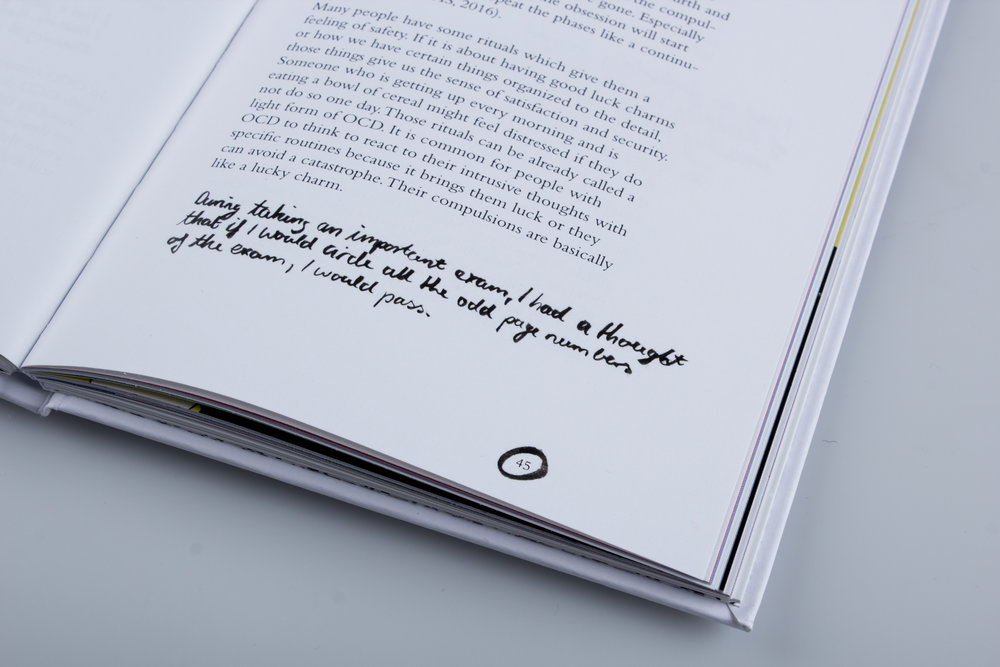 arth and
the compul-
gone. Especially
the obsession will start
2016). repeat the phases like a continu-
Many people have some rituals which give them a
feeling of safety. If it is about having good luck charms
or how we have certain things organized to the detail,
those things give us the sense of satisfaction and security.
Someone who is getting up every morning and is
eating a bowl of cereal might feel distressed if they do
not do so one day. Those rituals can be already called a
light form of OCD. It is common for people with
OCD to think to react to their intrusive thoughts with
specific routines because it brings them luck or they
can avoid a catastrophe. Their compulsions are basically
like a lucky charm.
During taking an important exam, I had a thought
that if I would circle all the odd page numbers
of the exam, I would pass.
45